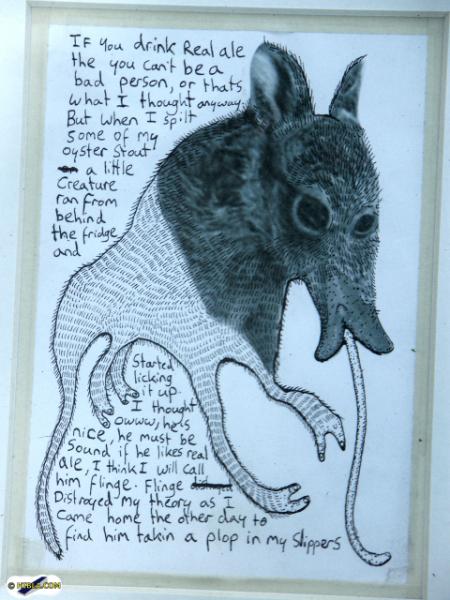 IF you drink Real ale
the you can't be a
bad person, or thats
what I thought anyway.
But when I spilt
some of my
oyster stout
a little
Creature
ran from
behind
the fridge
and
Started
licking
it up
I thought
owww, he's
nice, he must be
Sound if he likes real
ale, I think I will call
him flinge. Flinge
Distroyed my theory as I
Came home the other day to
find him takin a plop in my Slippers